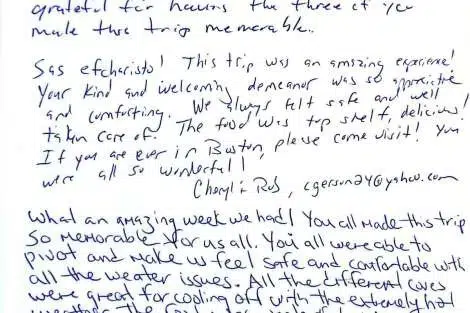 grateful for having the three of you
make this trip memorable.
Sas efcharisto! This trip was an amazing experience!
Your kind and welcoming demeanor was so
and comforting. We always felt safe and well
taken care of. The food was top shelf, delicious!
If you are ever in Boston, please come visit! You
were all so wonderful!
Cheryl & Rob, cgerson24@yahoo.com
What an amazing week we had! You all made this trip
So memorable for us all. You all were able to
pivot and make us feel safe and comfortable with
all the weater issues. All the different coves
were great for cooling off with the extremely hot